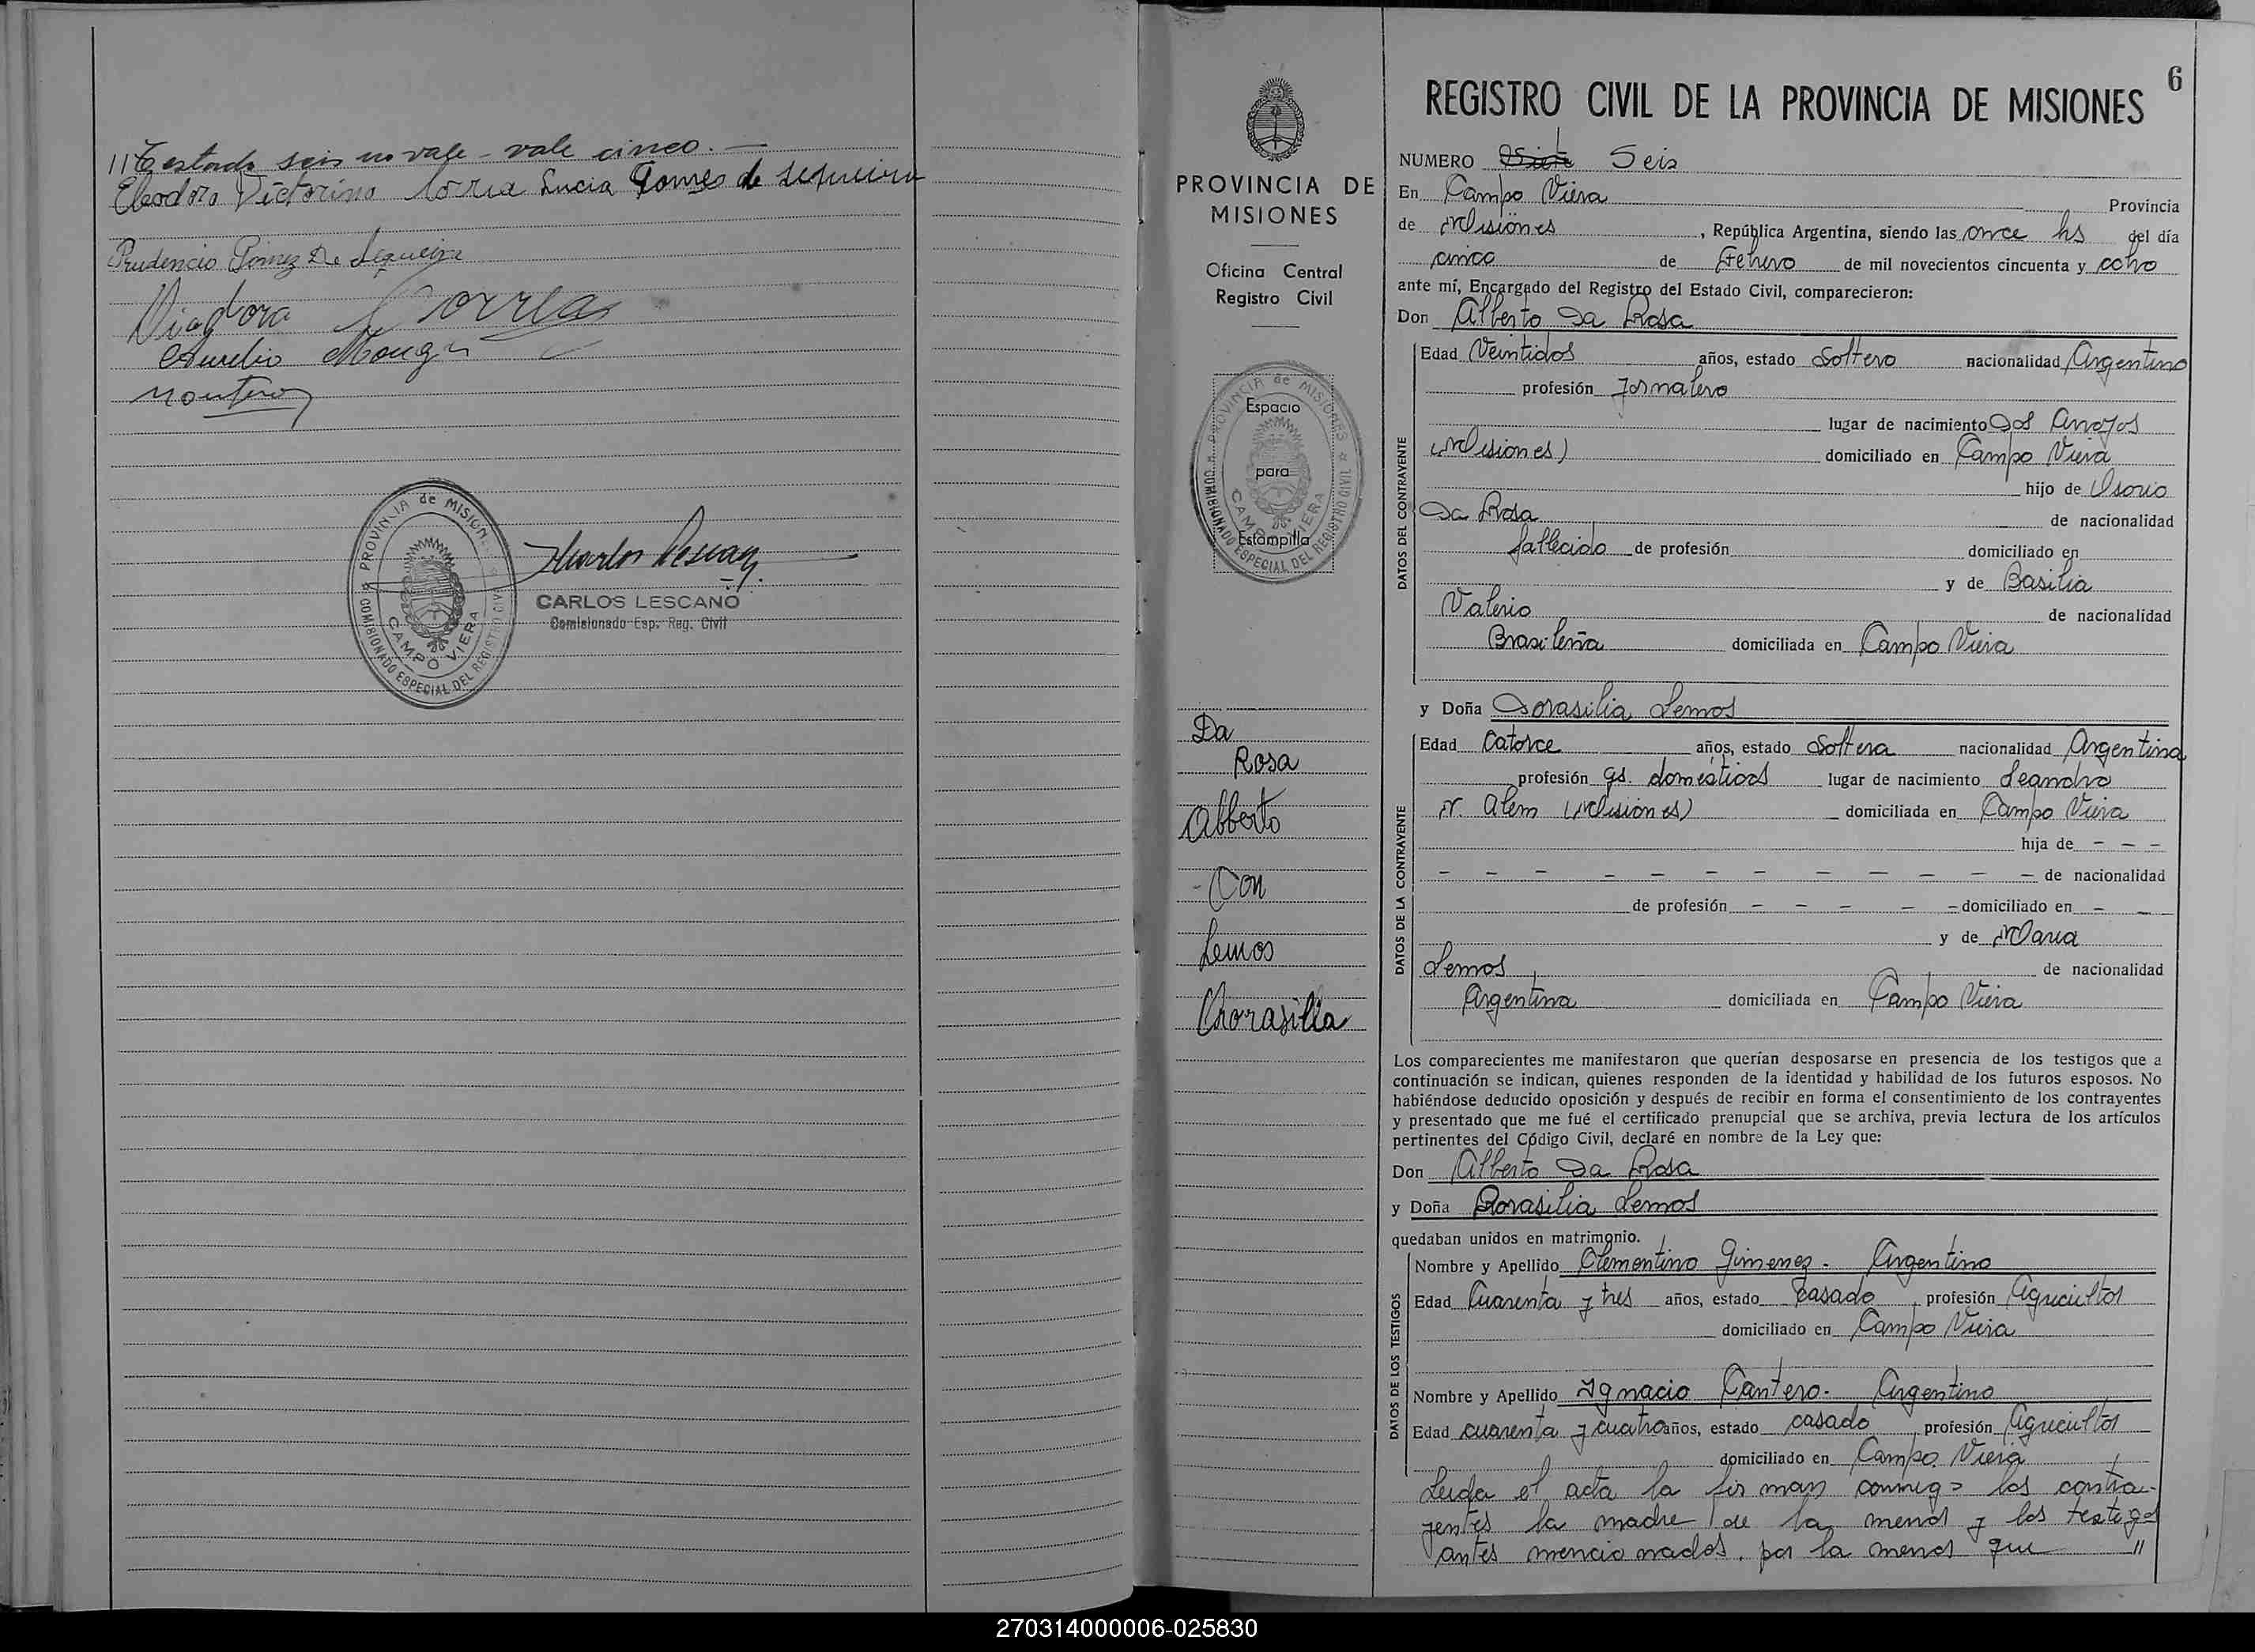 // Testado seis no vale - vale cinco. —
Eleodoro Victorino Correa Lucia Gomes de sequeira
Prudencio Gómez De Sequeira
Correa
Aurelio
Montero
PROVINCIA de MISIONES
COMISIONADO ESPECIAL DEL REGISTRO CIVIL
CAMPO VIERA
CARLOS LESCANO
Comisionado Esp. Reg. Civil
PROVINCIA DE
MISIONES
Oficina Central
Registro Civil
PROVINCIA de MISIONES
COMISIONADO ESPECIAL DEL REGISTRO CIVIL
CAMPO VIERA
Espacio
para
Estampilla
Da
Rosa
Alberto
- Con
Lemos
Chorasilia
6
REGISTRO CIVIL DE LA PROVINCIA DE MISIONES
NUMERO Siete Seis
En Campo Viera Provincia
de Misiones, República Argentina, siendo las once hs del día
cinco de Febrero de mil novecientos cincuenta y ocho
ante mí, Encargado del Registro del Estado Civil, comparecieron:
Don Alberto Da Rosa
DATOS DEL CONTRAYENTE
Edad Veintidos años, estado Soltero nacionalidad Argentino
profesión Jornalero
lugar de nacimiento Dos Arroyos
(Misiones) domiciliado en Campo Viera
hijo de Osorio
Da Rosa de nacionalidad
fallecido de profesión domiciliado en
y de Basilia
Valerio de nacionalidad
Brasileña domiciliada en Campo Viera
y Doña Dorasilia Lemos
DATOS DE LA CONTRAYENTE
Edad Catorce años, estado Soltera nacionalidad Argentina
profesión qs. domésticos lugar de nacimiento Leandro
N. Alem (Misiones) domiciliada en Campo Viera
hija de - - -
- - - - - - - - - - - - de nacionalidad
de profesión - - - - - domiciliado en - -
y de Maria
Lemos de nacionalidad
Argentina domiciliada en Campo Viera
Los comparecientes me manifestaron que querían desposarse en presencia de los testigos que a
continuación se indican, quienes responden de la identidad y habilidad de los futuros esposos. No
habiéndose deducido oposición y después de recibir en forma el consentimiento de los contrayentes
y presentado que me fué el certificado prenupcial que se archiva, previa lectura de los artículos
pertinentes del Código Civil, declaré en nombre de la Ley que:
Don Alberto Da Rosa
y Doña Dorasilia Lemos
quedaban unidos en matrimonio.
DATOS DE LOS TESTIGOS
Nombre y Apellido Clementino Gimenez - Argentino
Edad Cuarenta y tres años, estado casado profesión Agricultor
domiciliado en Campo Viera
Nombre y Apellido Ignacio Cantero - Argentino
Edad cuarenta y cuatro años, estado casado profesión Agricultor
domiciliado en Campo Viera
Leida el acta la firman conmigo los contra-
yentes la madre de la menor y los testigos
antes mencionados, por la menor que //
270314000006-025830